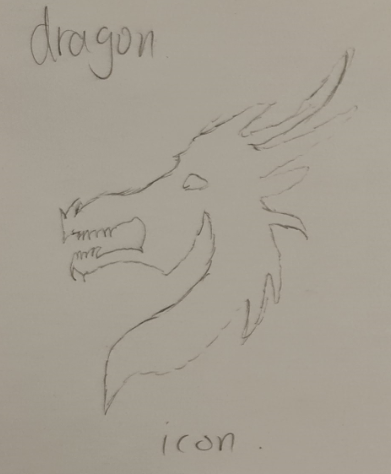 dragon
icon.